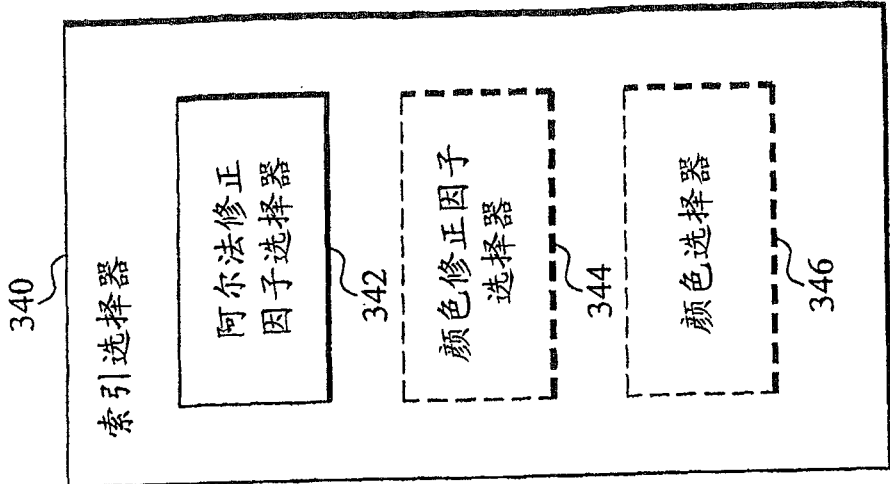 340
索引选择器
阿尔法修正
因子选择器
342
颜色修正因子
选择器
344
颜色选择器
346